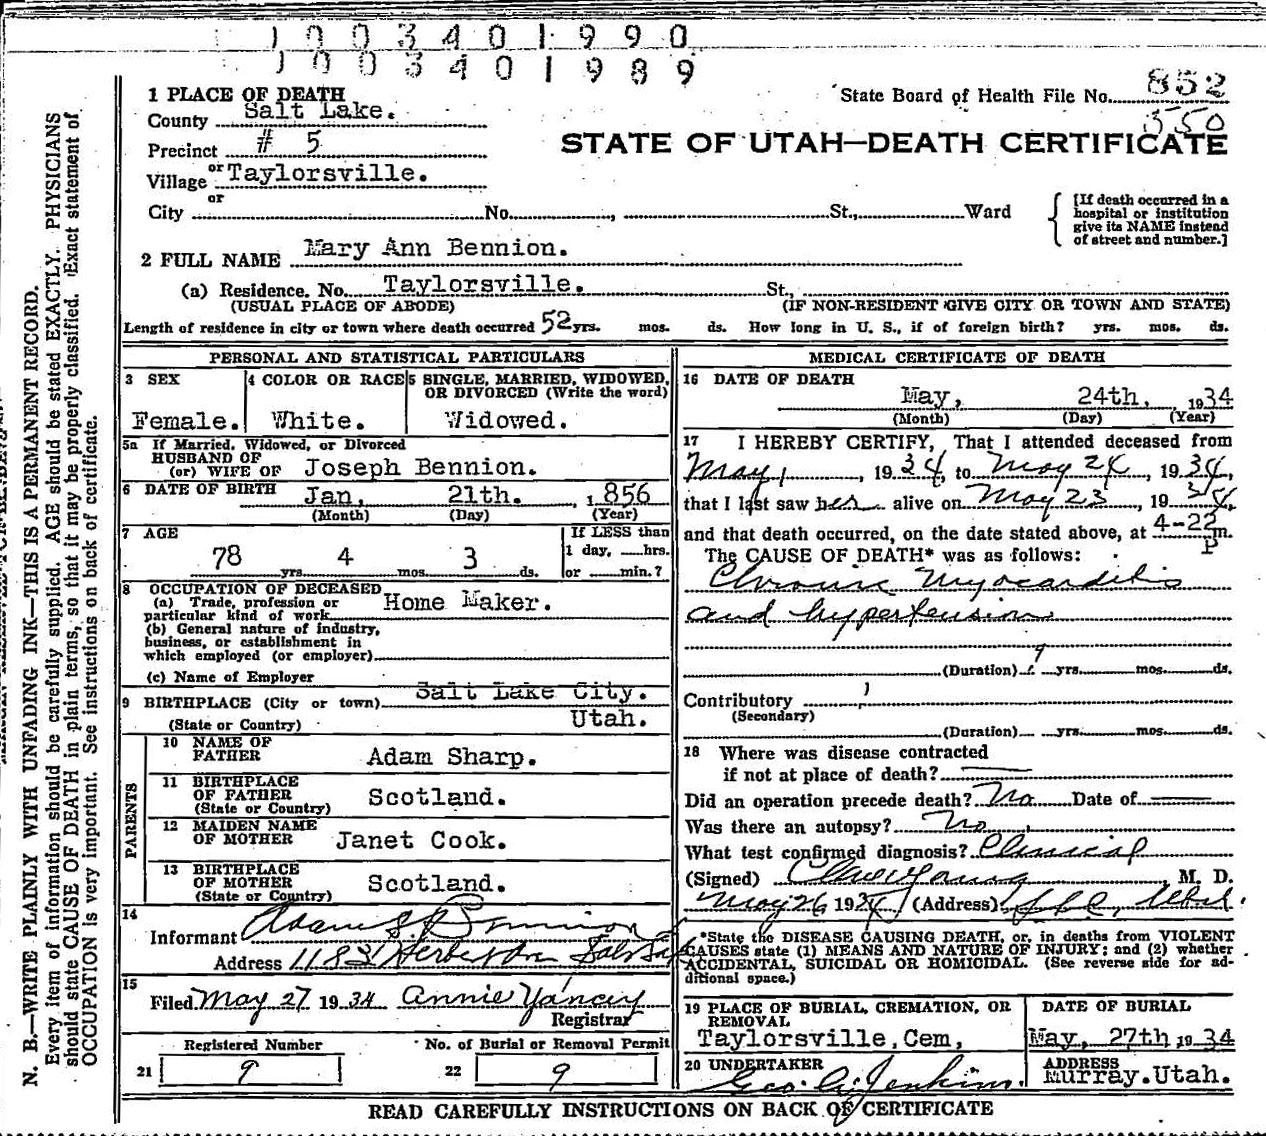 1003401990
1003401989
1 PLACE OF DEATH
County Salt Lake.
Precinct # 5
or
Village Taylorsville.
or
City No. , St., Ward
State Board of Health File No. 852
350
STATE OF UTAH—DEATH CERTIFICATE
[If death occurred in a
hospital or institution
give its NAME instead
of street and number.]
2 FULL NAME Mary Ann Bennion.
(a) Residence. No. Taylorsville. St.,
(USUAL PLACE OF ABODE) (IF NON-RESIDENT GIVE CITY OR TOWN AND STATE)
Length of residence in city or town where death occurred 52 yrs. mos. ds. How long in U. S., if of foreign birth? yrs. mos. ds.
PERSONAL AND STATISTICAL PARTICULARS
3 SEX 4 COLOR OR RACE 5 SINGLE, MARRIED, WIDOWED,
OR DIVORCED (Write the word)
Female. White. Widowed.
5a If Married, Widowed, or Divorced
HUSBAND OF
(or) WIFE OF Joseph Bennion.
6 DATE OF BIRTH Jan, 21th. , 1856
(Month) (Day) (Year)
7 AGE If LESS than
78 yrs. 4 mos. 3 ds. 1 day, hrs.
or min.?
8 OCCUPATION OF DECEASED
(a) Trade, profession or
particular kind of work Home Maker.
(b) General nature of industry,
business, or establishment in
which employed (or employer)
(c) Name of Employer
9 BIRTHPLACE (City or town) Salt Lake City.
(State or Country) Utah.
PARENTS
10 NAME OF
FATHER Adam Sharp.
11 BIRTHPLACE
OF FATHER Scotland.
(State or Country)
12 MAIDEN NAME
OF MOTHER Janet Cook.
13 BIRTHPLACE
OF MOTHER Scotland.
(State or Country)
14
Informant Adam S. Bennion
Address 1183 Herbert Ave Salt
15
Filed May 27 1934 Annie Yancey
Registrar
Registered Number No. of Burial or Removal Permit
21 9 22 9
MEDICAL CERTIFICATE OF DEATH
16 DATE OF DEATH
May, 24th, 1934
(Month) (Day) (Year)
17 I HEREBY CERTIFY, That I attended deceased from
May 1, 1934, to May 24, 1934,
that I last saw her alive on May 23, 1934,
and that death occurred, on the date stated above, at 4-22 P m.
The CAUSE OF DEATH* was as follows:
Chronic Myocarditis
and hypertension
(Duration) yrs. mos. ds.
Contributory
(Secondary)
(Duration) yrs. mos. ds.
18 Where was disease contracted
if not at place of death?
Did an operation precede death? No Date of
Was there an autopsy? No
What test confirmed diagnosis? Clinical
(Signed) M. D.
May 26 1934 (Address) S L C, Utah.
*State the DISEASE CAUSING DEATH, or, in deaths from VIOLENT
CAUSES state (1) MEANS AND NATURE OF INJURY; and (2) whether
ACCIDENTAL, SUICIDAL OR HOMICIDAL. (See reverse side for ad-
ditional space.)
19 PLACE OF BURIAL, CREMATION, OR
REMOVAL
Taylorsville, Cem,
DATE OF BURIAL
May, 27th, 1934
20 UNDERTAKER
Geo. A. Jenkins.
ADDRESS
Murray. Utah.
READ CAREFULLY INSTRUCTIONS ON BACK OF CERTIFICATE
N. B.—WRITE PLAINLY WITH UNFADING INK—THIS IS A PERMANENT RECORD.
Every item of information should be carefully supplied. AGE should be stated EXACTLY. PHYSICIANS
should state CAUSE OF DEATH in plain terms, so that it may be properly classified. Exact statement of
OCCUPATION is very important. See instructions on back of certificate.